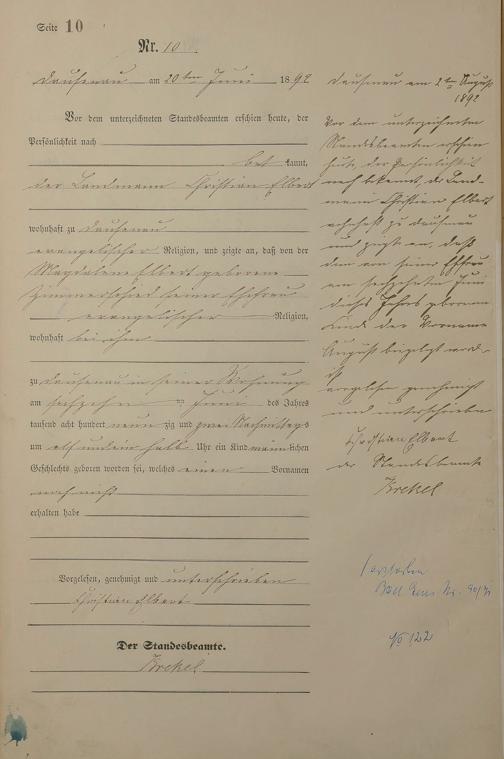 Seite 10
Nr. 10
Dausenau am 20ten Juni 1892
Vor dem unterzeichneten Standesbeamten erschien heute, der
Persönlichkeit nach
be kannt,
der Landmann Christian Elbert
wohnhaft zu Dausenau
evangelischer Religion, und zeigte an, daß von der
Magdalena Elbert geborene
Zimmerschied seiner Ehefrau
evangelischer Religion,
wohnhaft bei ihm
zu Dausenau in seiner Wohnung
am sechzehn ten Juni des Jahres
tausend acht hundert neun zig und zwei Nachmittags
um elf und ein halb Uhr ein Kind männlichen
Geschlechts geboren worden sei, welches einen Vornamen
noch nicht
erhalten habe
Vorgelesen, genehmigt und unterschrieben
Christian Elbert
Der Standesbeamte.
Brekel
Dausenau am 2ten August
1892
Vor dem unterzeichneten
Standesbeamten erschien
heute, der Persönlichkeit
nach bekannt, der Land-
mann Christian Elbert
wohnhaft zu Dausenau
und zeigte an, daß
dem von seiner Ehefrau
am sechzehnten Juni
dieses Jahres geborenen
Kinde der Vorname
August beigelegt worden
ist
vorgelesen genehmigt
und unterschrieben
Christian Elbert
der Standesbeamte
Brekel
Bad Ems Nr.
122